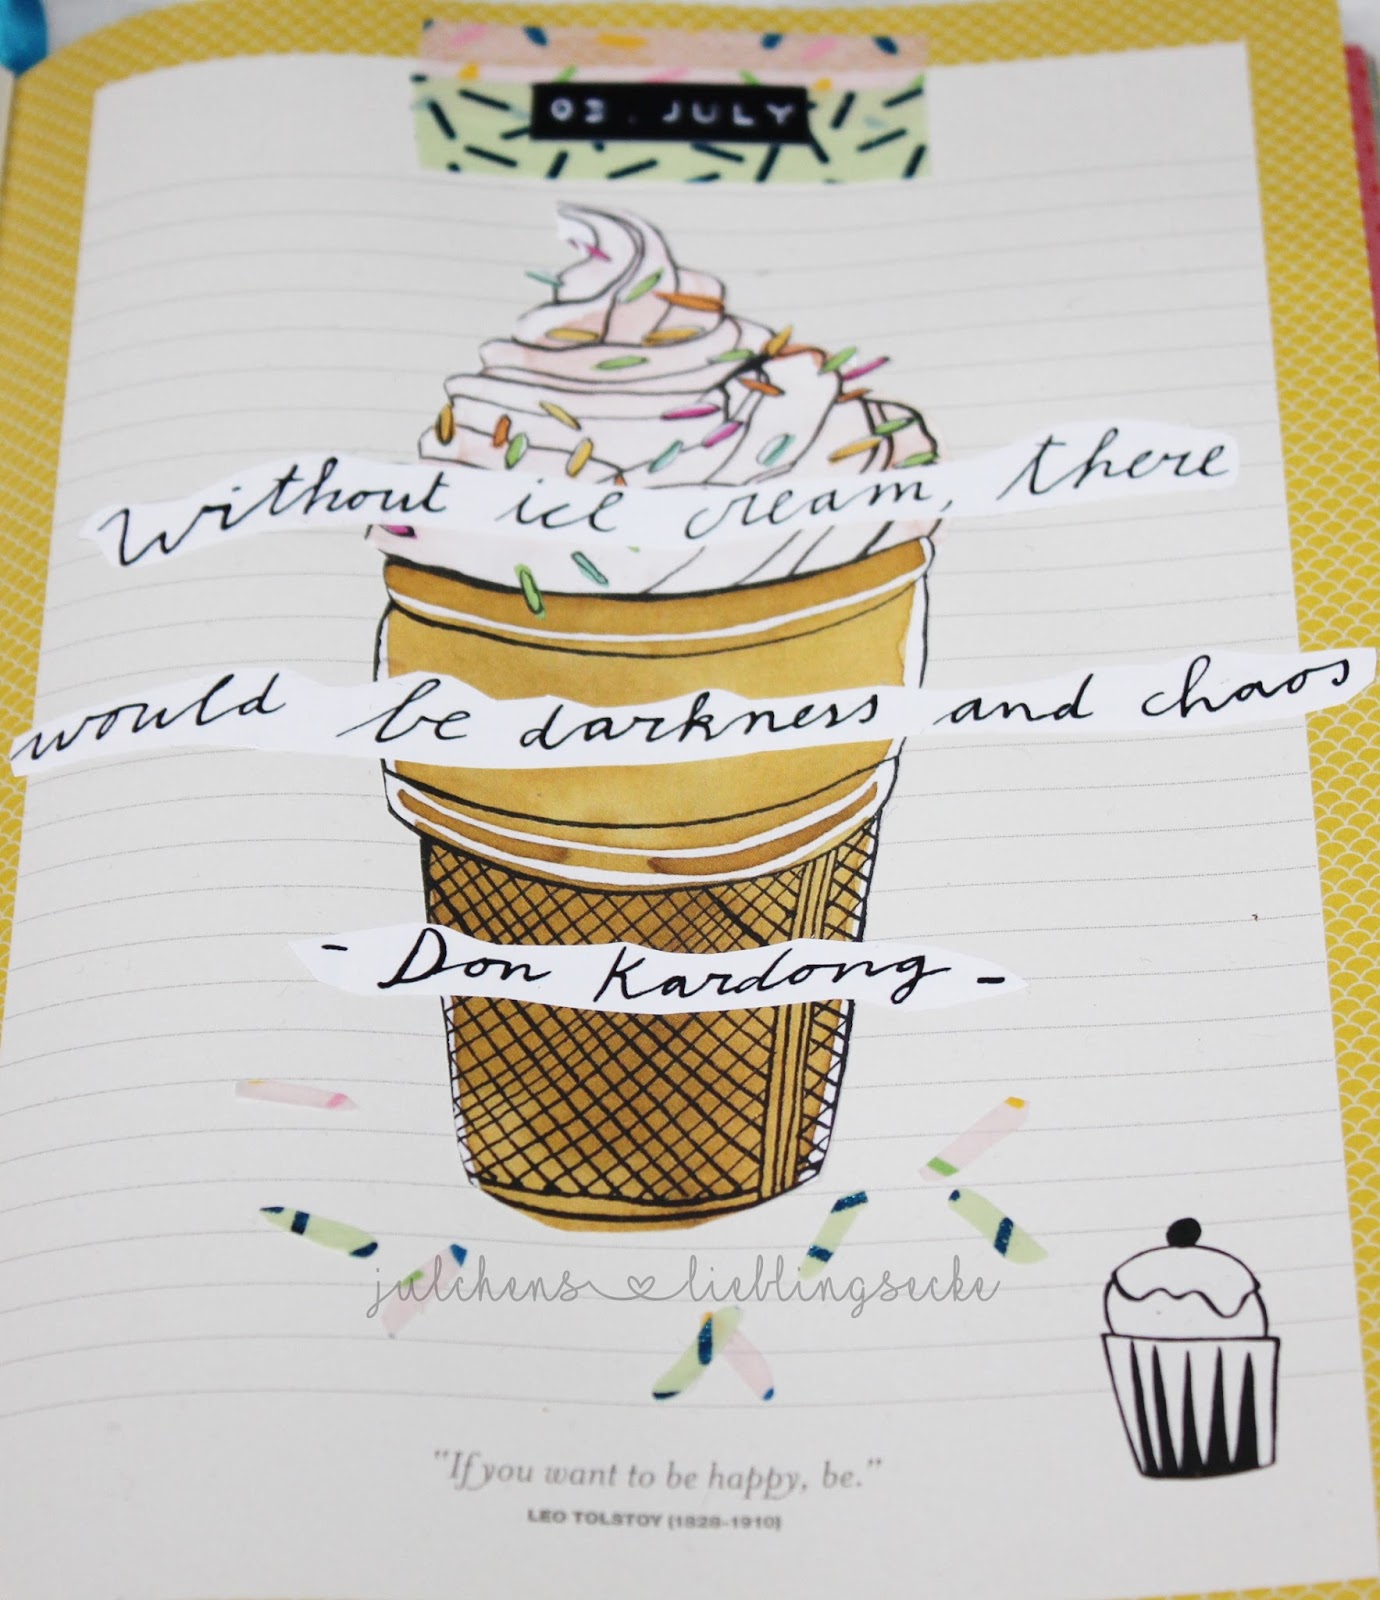 03. JULY
Without ice cream, there
would be darkness and chaos
- Don Kardong -
julchens lieblingsecke
"If you want to be happy, be."
LEO TOLSTOY (1828-1910)